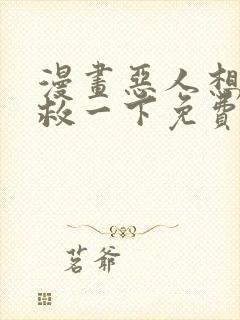 漫畫惡人想
救一下免費
茗爺